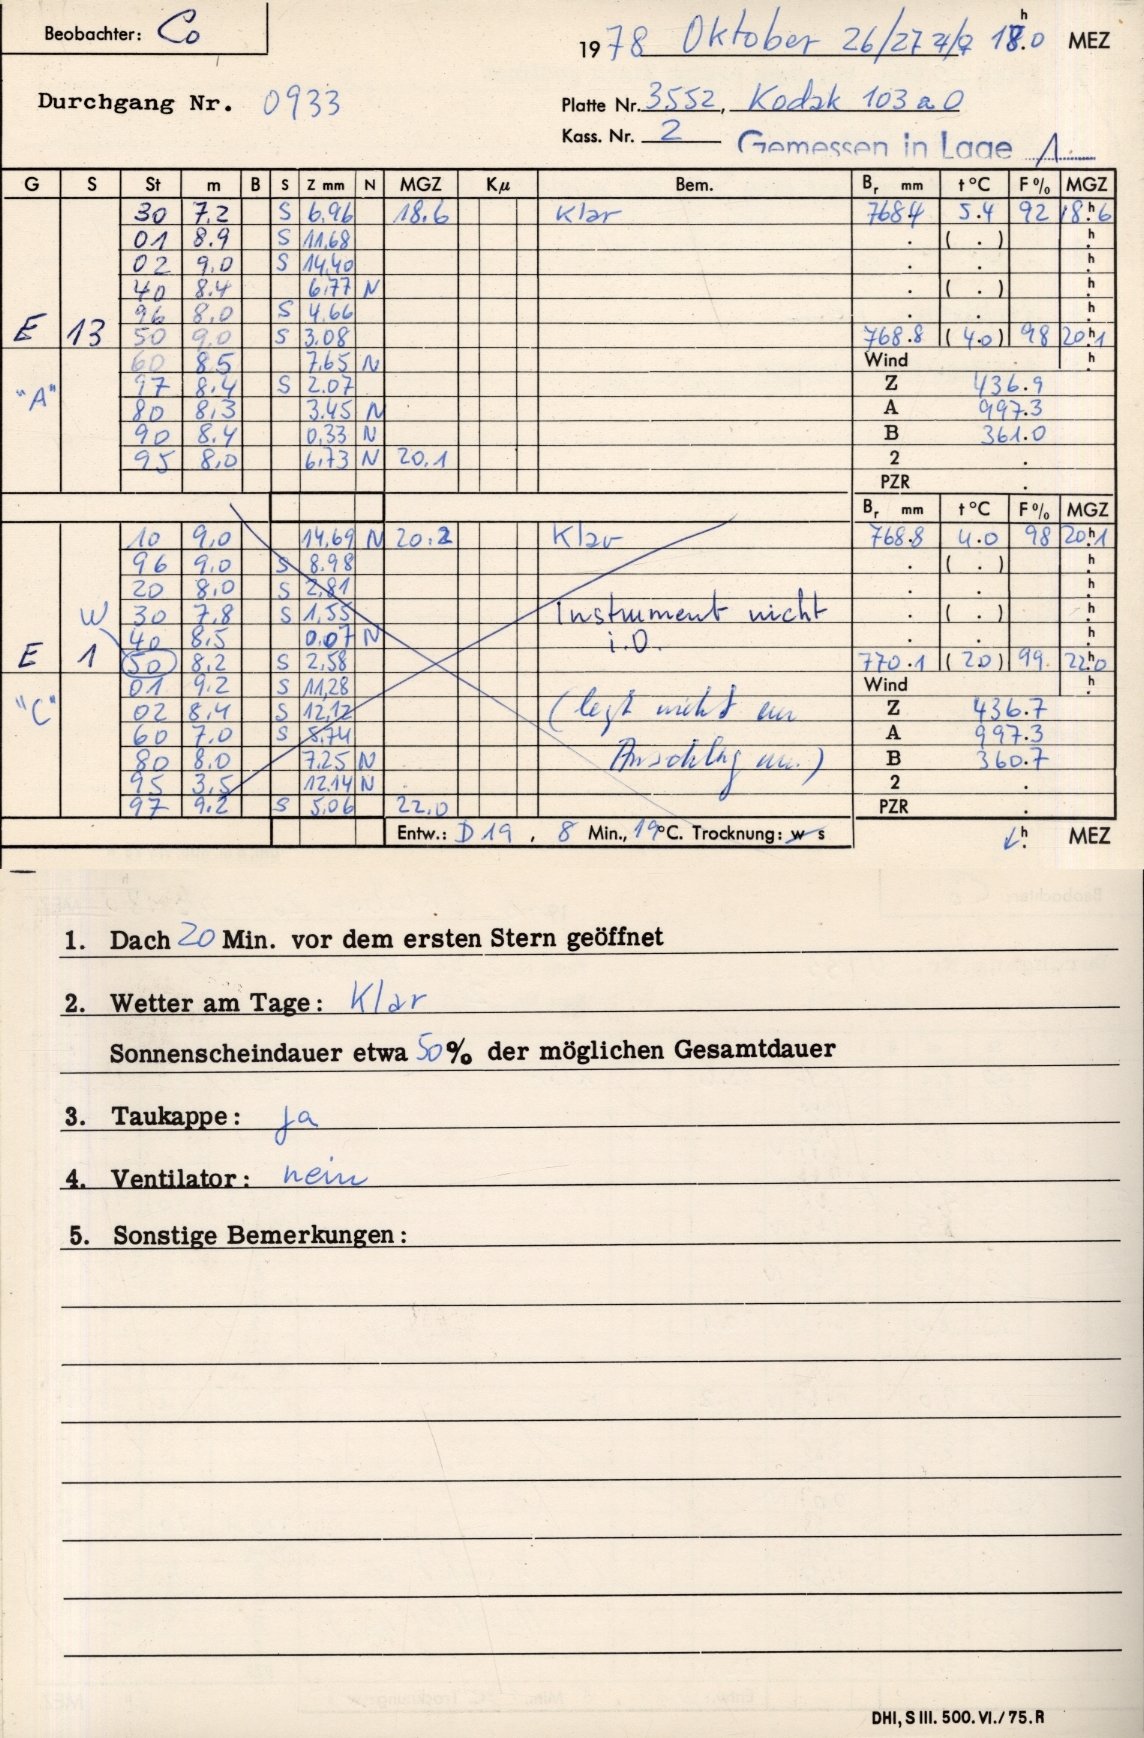 Beobachter: Co
1978 Oktober 26/27 18.0 h MEZ
Durchgang Nr. 0933
Platte Nr. 3552, Kodak 103 a O
Kass. Nr. 2 Gemessen in Lage 1
G S St m B S Z mm N MGZ Kμ Bem. Br mm t °C F % MGZ
30 7.2 S 6.96 18.6 Klar 768.4 5.4 92 18.h6
01 8.9 S 11.68 . ( . ) h
02 9.0 S 14.40 . . h
40 8.4 6.77 N . ( . ) h
96 8.0 S 4.66 . . h
E 13 50 9.0 S 3.08 768.8 (4.0) 98 20.h1
60 8.5 7.65 N Wind h
"A" 97 8.4 S 2.07 Z 436.9
80 8.3 3.45 N A 997.3
90 8.4 0.33 N B 361.0
95 8.0 6.73 N 20.1 2 .
PZR .
Br mm t °C F % MGZ
10 9.0 14.69 N 20.2 Klar 768.8 4.0 98 20.h1
96 9.0 S 8.98 . ( . ) h
20 8.0 S 2.81 . . h
W 30 7.8 S 1.55 Instrument nicht . ( . ) h
40 8.5 0.07 N i.O. . . h
E 1 50 8.2 S 2.58 770.1 (2.0) 99. 22.h0
01 9.2 S 11.28 Wind h
"C" 02 8.4 S 12.12 (legt nicht am Z 436.7
60 7.0 S 5.74 A 997.3
80 8.0 7.25 N Anschlag an.) B 360.7
95 3.5 12.14 N 2 .
97 9.2 S 5.06 22.0 PZR .
Entw.: D 19, 8 Min., 19°C. Trocknung: w s h MEZ
1. Dach 20 Min. vor dem ersten Stern geöffnet
2. Wetter am Tage: Klar
Sonnenscheindauer etwa 50% der möglichen Gesamtdauer
3. Taukappe: ja
4. Ventilator: nein
5. Sonstige Bemerkungen:
DHI, S III. 500. VI./75. R